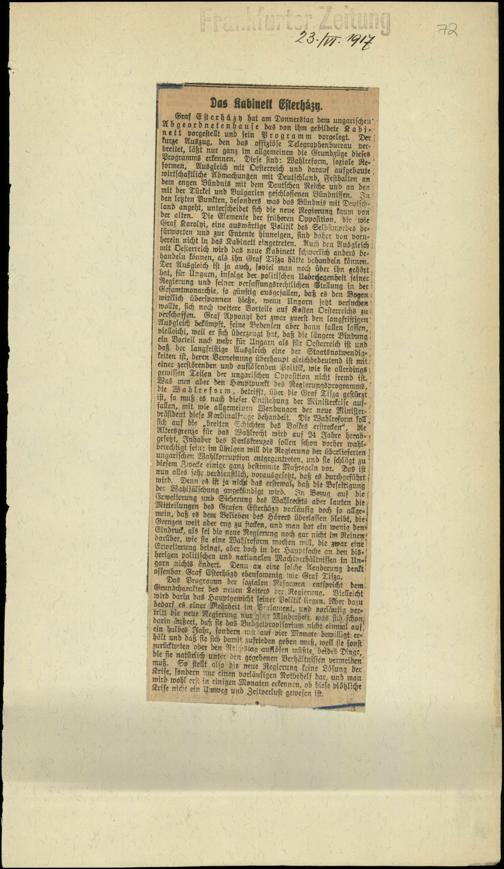 Frankfurter Zeitung
23./VI. 1917
72
Das Kabinett Esterházy.
Graf Esterházy hat am Donnerstag dem ungarischen
Abgeordnetenhause das von ihm gebildete Kabi-
nett vorgestellt und sein Programm vorgelegt. Der
kurze Auszug, den das offiziöse Telegraphenbureau ver-
breitet, läßt nur ganz im allgemeinen die Grundzüge dieses
Programms erkennen. Diese sind: Wahlreform, soziale Re-
formen, Ausgleich mit Oesterreich und darauf aufgebaute
wirtschaftliche Abmachungen mit Deutschland, Festhalten an
dem engen Bündnis mit dem Deutschen Reiche und an den
mit der Türkei und Bulgarien geschlossenen Bündnissen. In
den letzten Punkten, besonders was das Bündnis mit Deutsch-
land angeht, unterscheidet sich die neue Regierung kaum von
der alten. Die Elemente der früheren Opposition, die wie
Graf Karolyi, eine auswärtige Politik des Selbstmordes be-
fürworten und zur Entente hinneigen, sind daher von vorn-
herein nicht in das Kabinett eingetreten. Auch den Ausgleich
mit Oesterreich wird das neue Kabinett schwerlich anders be-
handeln können, als ihn Graf Tisza hätte behandeln können.
Der Ausgleich ist ja auch, soviel man noch über ihn gehört
hat, für Ungarn, infolge der politischen Ueberlegenheit seiner
Regierung und seiner verfassungsrechtlichen Stellung in der
Gesamtmonarchie, so günstig ausgefallen, daß es den Bogen
wirklich überspannen hieße, wenn Ungarn jetzt versuchen
wollte, sich noch weitere Vorteile auf Kosten Oesterreichs zu
verschaffen. Graf Apponyi hat zwar zuerst den langfristigen
Ausgleich bekämpft, seine Bedenken aber dann fallen lassen,
vielleicht, weil er sich überzeugt hat, daß die längere Bindung
ein Vorteil noch mehr für Ungarn als für Oesterreich ist und
daß der langfristige Ausgleich eine der Staatsnotwendig-
keiten ist, deren Verneinung überhaupt gleichbedeutend ist mit
einer zerstörenden und auflösenden Politik, wie sie allerdings
gewissen Teilen der ungarischen Opposition nicht fremd ist.
Was nun aber den Hauptpunkt des Regierungsprogramms,
die Wahlreform, betrifft, über die Graf Tisza gestürzt
ist, so muß es nach dieser Entstehung der Ministerkrise auf-
fallen, mit wie allgemeinen Wendungen der neue Minister-
präsident diese Kardinalfrage behandelt. Die Wahlreform soll
sich auf die „breiten Schichten des Volkes erstrecken“, die
Altersgrenze für das Wahlrecht wird auf 24 Jahre herab-
gesetzt, Inhaber des Karlskreuzes sollen schon vorher wahl-
berechtigt sein; im übrigen will die Regierung der überlieferten
ungarischen Wahlkorruption entgegentreten, und sie schlägt zu
diesem Zwecke einige ganz bestimmte Maßregeln vor. Das ist
nun alles sehr verdienstlich, vorausgesetzt, daß es durchgeführt
wird. Denn es ist ja nicht das erstemal, daß die Beseitigung
der Wahlfälschung angekündigt wird. In Bezug auf die
Erweiterung und Sicherung des Wahlrechts aber lauten die
Mitteilungen des Grafen Esterházy vorläufig doch so allge-
mein, daß es dem Belieben des Hörers überlassen bleibt, die
Grenzen weit aber eng zu stecken, und man hat ein wenig den
Eindruck, als sei die neue Regierung noch gar nicht im Reinen
darüber, wie sie eine Wahlreform machen will, die zwar eine
Erweiterung bringt, aber doch in der Hauptsache an den bis-
herigen politischen und nationalen Machtverhältnissen in Un-
garn nichts ändert. Denn an eine solche Aenderung denkt
offenbar Graf Esterházy ebensowenig wie Graf Tisza.
Das Programm der sozialen Reformen entspricht dem
Grundcharakter des neuen Leiters der Regierung. Vielleicht
wird darin das Hauptgewicht seiner Politik liegen. Aber dazu
bedarf es einer Mehrheit im Parlament, und vorläufig ver-
tritt die neue Regierung nur eine Minderheit, was sich schon
darin äußert, daß sie das Budgetprovisorium nicht einmal auf
ein halbes Jahr, sondern nur auf vier Monate bewilligt er-
hält und daß sie sich damit zufrieden geben muß, weil sie sonst
zurücktreten oder den Reichstag auflösen müßte, beides Dinge,
die sie natürlich unter den gegebenen Verhältnissen vermeiden
muß. So stellt also die neue Regierung keine Lösung der
Krise, sondern nur einen vorläufigen Notbehelf dar, und man
wird wohl erst in einigen Monaten erkennen, ob diese plötzliche
Krise nicht ein Umweg und Zeitverlust gewesen ist.